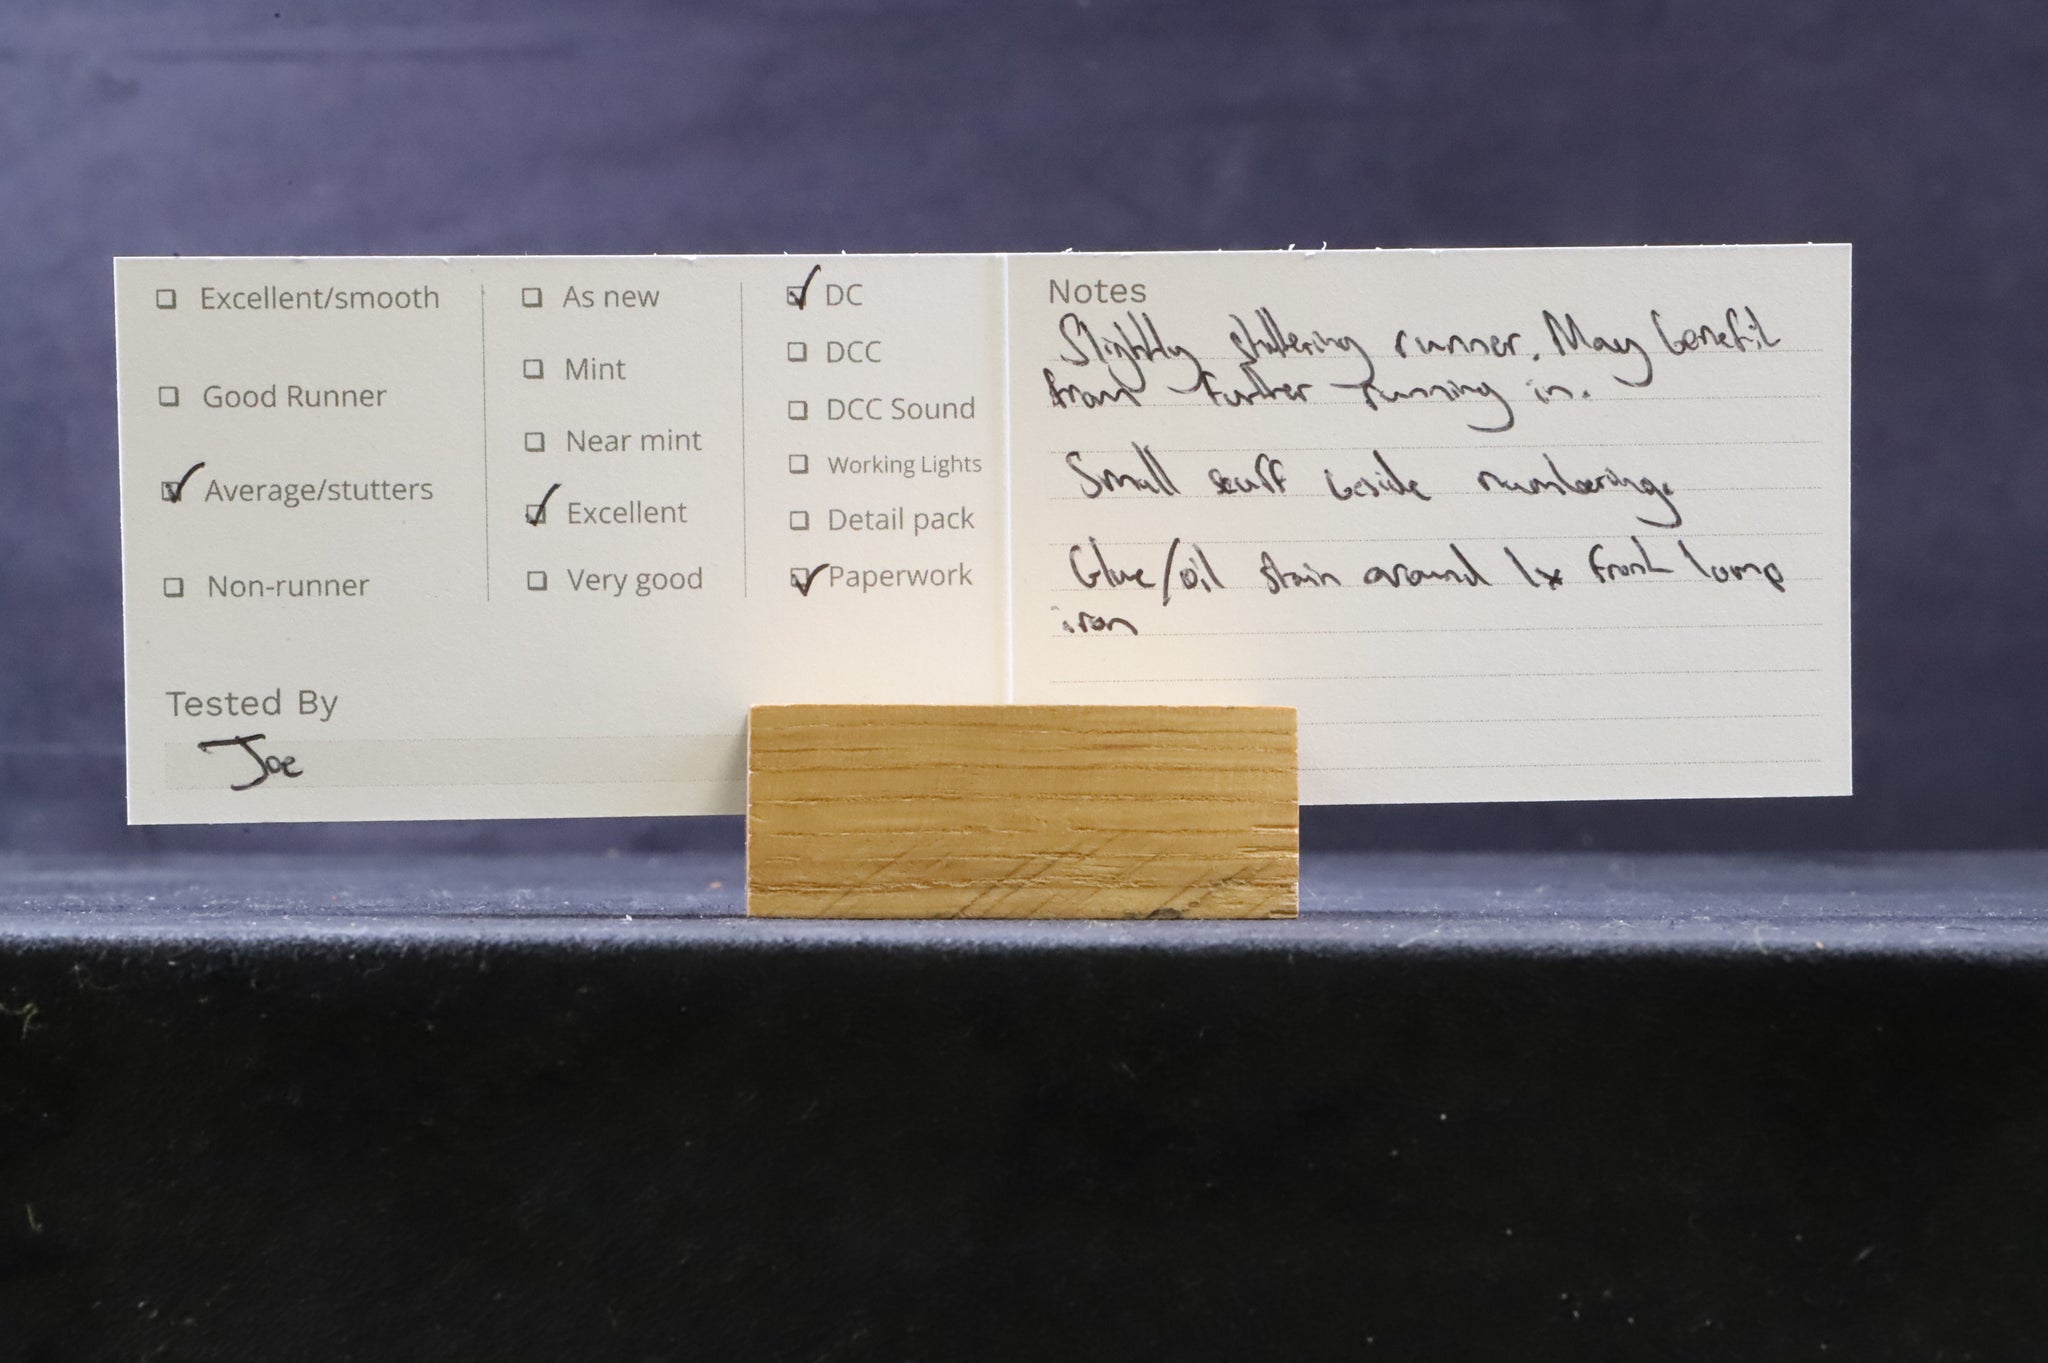 Excellent/smooth
Good Runner
Average/stutters
Non-runner
As new
Mint
Near mint
Excellent
Very good
DC
DCC
DCC Sound
Working Lights
Detail pack
Paperwork
Tested By
Joe
Notes
Slightly stuttering runner. May benefit
from further running in.
Small scuff beside numbering.
Glue/oil stain around 1x front lamp
iron